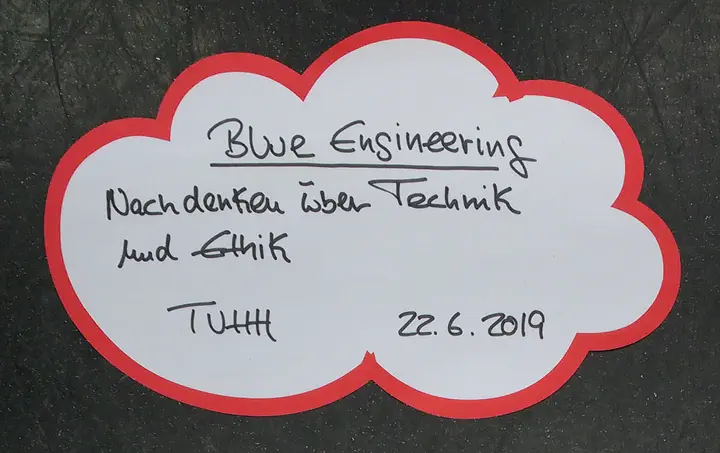 Blue Engineering
Nachdenken über Technik
und Ethik
TUHH 22.6.2019